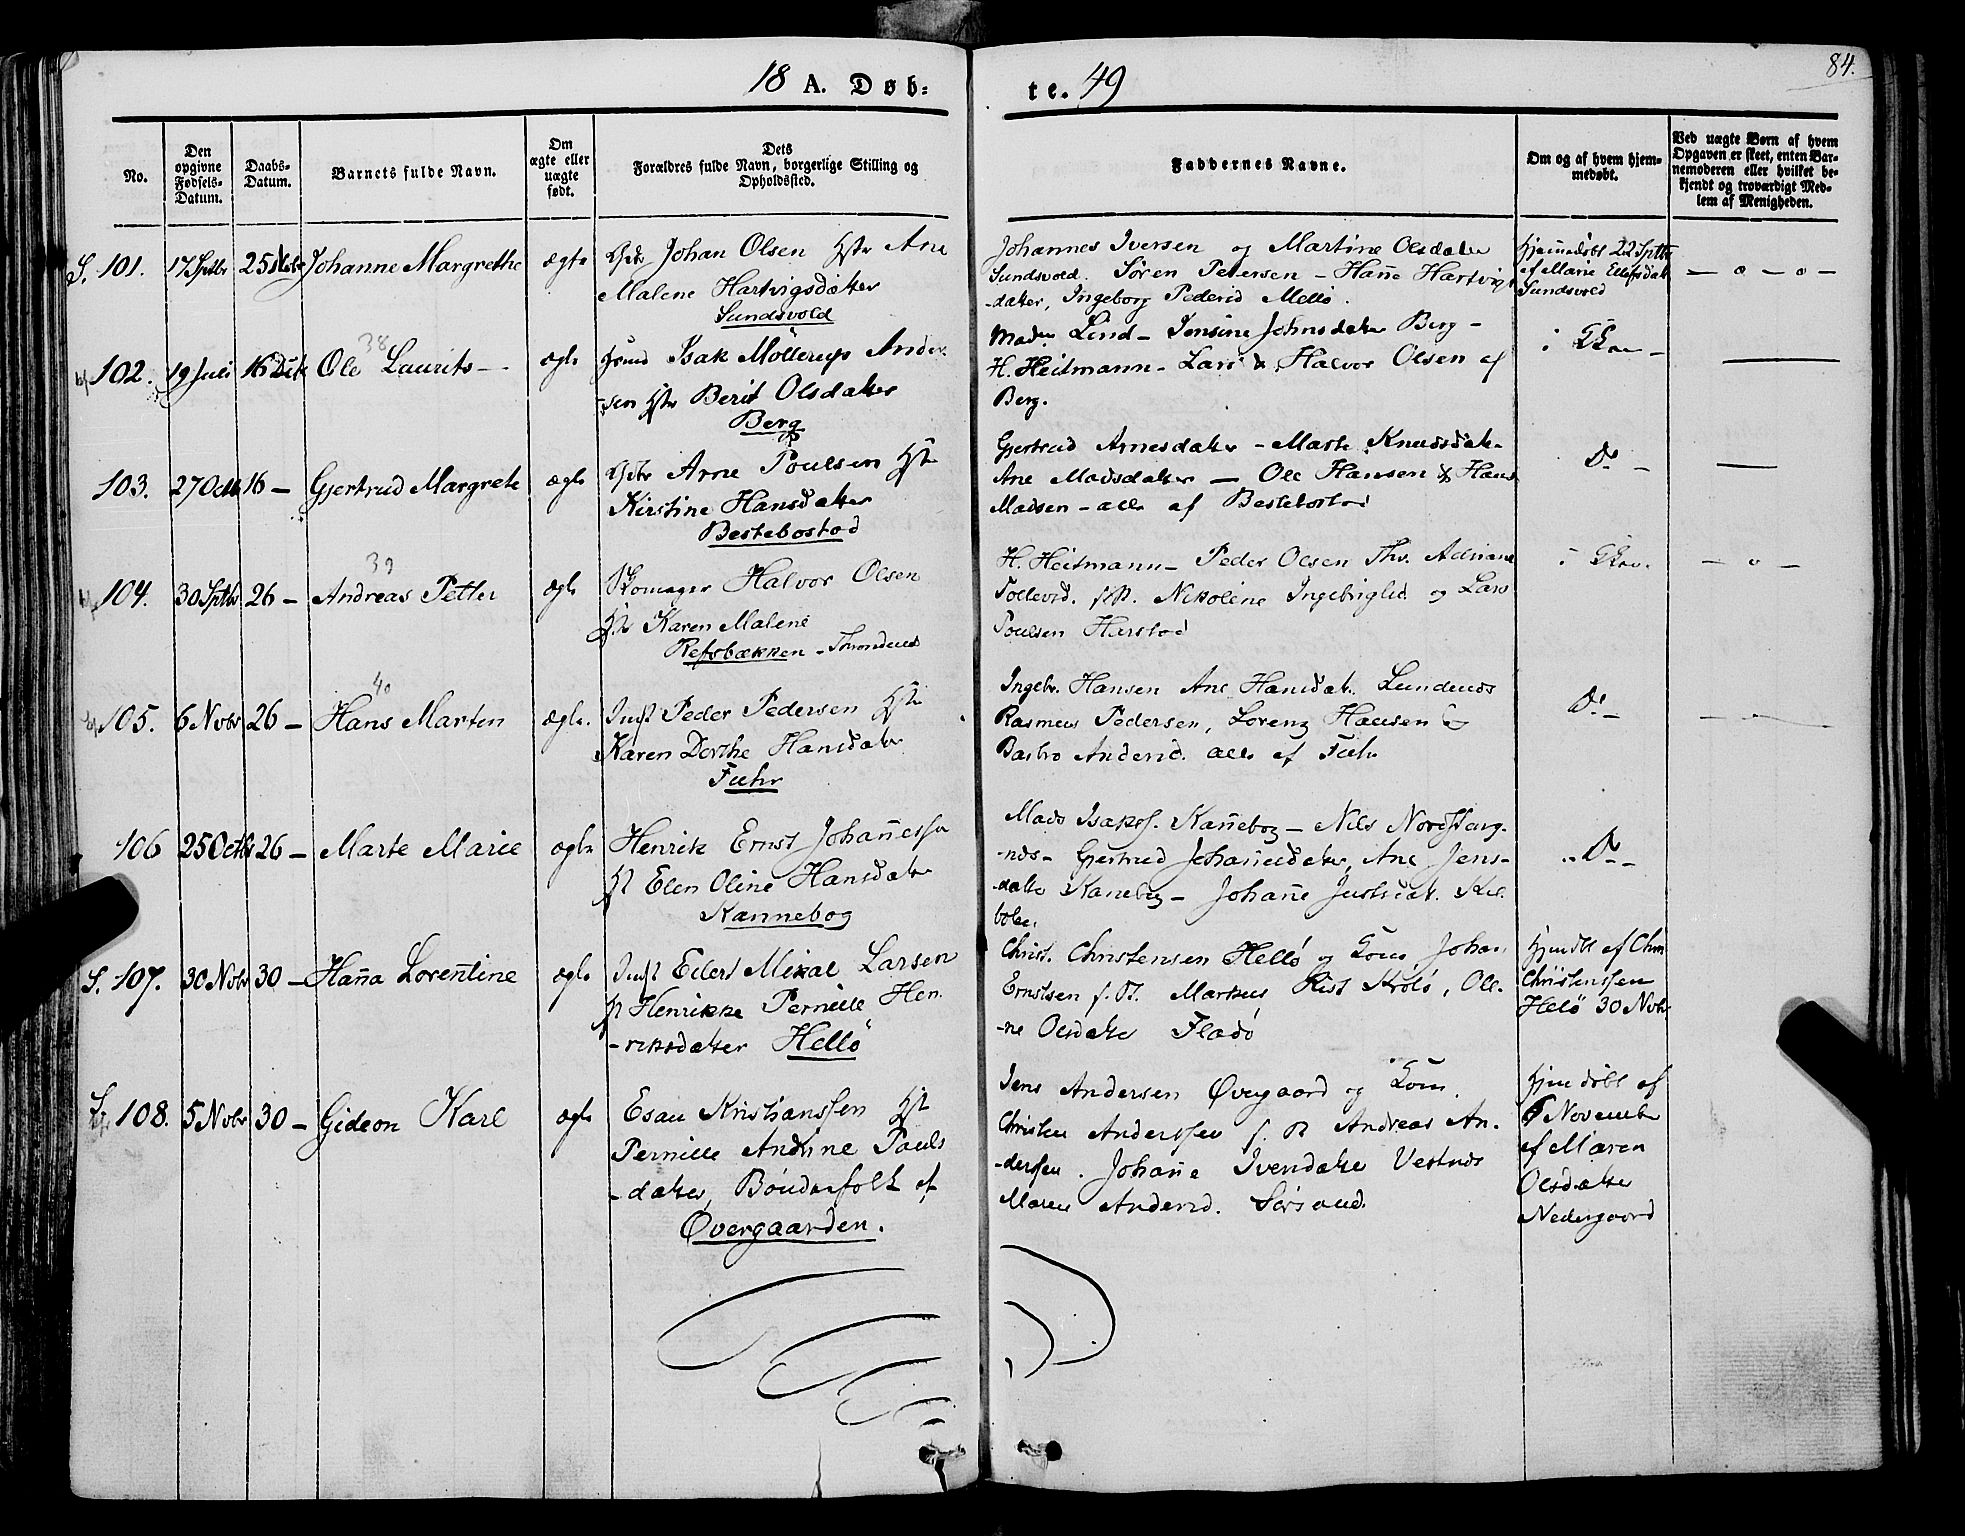 84.
18 A. Døb=
te. 49
No.
Den opgivne Fødsels-Datum.
Daabs-Datum.
Barnets fulde Navn.
Om ægte eller uægte født.
Dets Forældres fulde Navn, borgerlige Stilling og Opholdssted.
Faddernes Navne.
Om og af hvem hjemmedøbt.
Ved uægte Børn af hvem Opgaven er skeet, enten Barnemoderen eller hvilket bekjendt og troværdigt Medlem af Menigheden.
S. 101. 17 Sptbr 25 Johanne Margrethe ægte Johan Olsen Hst Ane
Malene Hartvigsdatter
Sundsvold
Johannes Iversen og Martine Olsdatter
Sundsvold. Søren Petersen - Hañe Hartvigs
-datter, Ingeborg Pedersd Mellø.
Hjemmedøbt 22 Sptbr
af Marie Ellefsdatt
Sundsvold
— o — o —
38
102. 19 Juli 16 Ole Laurits — ægte Isak Möllerup Ander
sen Hst Berit Olsdatter
Berg
Lind - Jensine Johnsdatter Berg -
H. Heitmann - Lars & Halvor Olsen af
Berg.
103. 27 Octb 16 — Gjertrud Margrete ægte Arne Poulsen Hst
Kirstine Hansdatter
Bestebostad
Gjertrud Arnesdatter - Marte Knudsdatr
Ane Madsdatter — Ole Hansen & Hans
Madsen - alle af Bestebostad
Do —
39
104. 30 Sptbr 26 — Andreas Petter ægte Skomager Halvor Olsen
Hst Karen Malene
Refsbækken - Throndenes
H. Heitmann - Peder Olsen Adriane
Nikoline og Lars
Poulsen Harstad
— o —
40
105. 6 Novbr 26 — Hans Marten ægte. Inst Peder Pedersen Hst
Karen Dorthe Hansdatter
Fuhr
Ingebr. Hansen Ane Hansdatr. Lundenes
Rasmus Pedersen, Lorenz Hansen &
Barbro Andersd. alle af Fuhr
Do —
106 25 Octbr 26 — Marte Marie ægte Henrik Ernst Johañessen
Hst Elen Oline Hansdatter
Kannebog
Mads Isaks. Kañebog - Nils
Gjertrud Johañesdatter, Ane Jens-
datter Kanebog - Johañe
Do —
S. 107. 30 Novbr 30 — Haña Lorentine ægte Inst Eilert Mikal Larsen
Hst Henrikke Pernille Hen.
-riksdatter Hellø
Christ. Christensen Hellø og Kone Johan
Ernstsen Markus Krøtø, Oli-
-ne Olsdatter Fladø
Hjemdbt af Chri
Christenssen
Helø 30 Novbr
108. 5 Novbr 30 — Gideon Karl ægte Esau Kristianssen Hst
Pernille Andrine Pauls
-datter, Bøndefolk af
Øvergaarden.
Jens Andersen Øvergaard og Kone
Christen Anderssen Andreas An-
-derssen. Johañe Iversdatter Vestnes
Maren Andersd. Sørsand.
Hjemdøbt af
6 November
af Maren
Olsdatter
Nedergaard